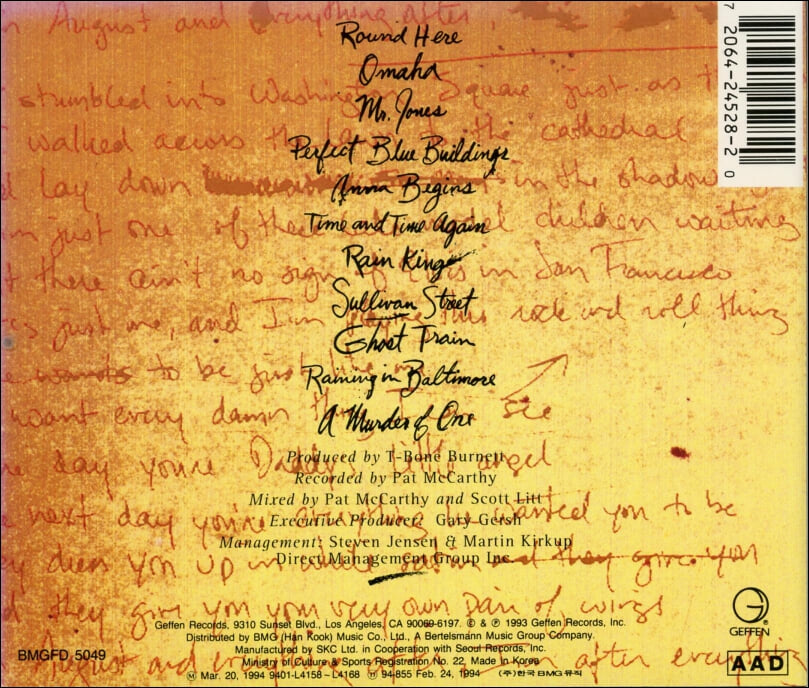 August and everything after,
Round Here
Omaha
stumbled into Washington Square just as
Mr. Jones
walked across the cathedral
Perfect Blue Buildings
lay down in the shadow
Anna Begins
just one of these children waiting
Time and Time Again
there ain't no sign in San Francisco
Rain King
Sullivan Street
just me, and I'm this rock and roll thing
Ghost Train
wants to be just
Raining in Baltimore
want every damn see
A Murder of One
Produced by T-Bone Burnett
day you're Daddy's angel
Recorded by Pat McCarthy
Mixed by Pat McCarthy and Scott Litt
next day you're wanted you to be
Executive Producer: Gary Gersh
Management: Steven Jensen & Martin Kirkup
Direct Management Group Inc.
dress you up in and they give you
they give you your very own pair of wings
August and after everything
Geffen Records, 9310 Sunset Blvd., Los Angeles, CA 90069-6197. © & ℗ 1993 Geffen Records, Inc.
Distributed by BMG (Han Kook) Music Co., Ltd., A Bertelsmann Music Group Company.
Manufactured by SKC Ltd. in Cooperation with Seoul Records, Inc.
Ministry of Culture & Sports Registration No. 22, Made in Korea
Ⓜ Mar. 20, 1994 9401-L4158 – L4168 94-855 Feb. 24, 1994 (주)한국 BMG 뮤직
BMGFD 5049
GEFFEN
AAD
7 2064-24528-2 0